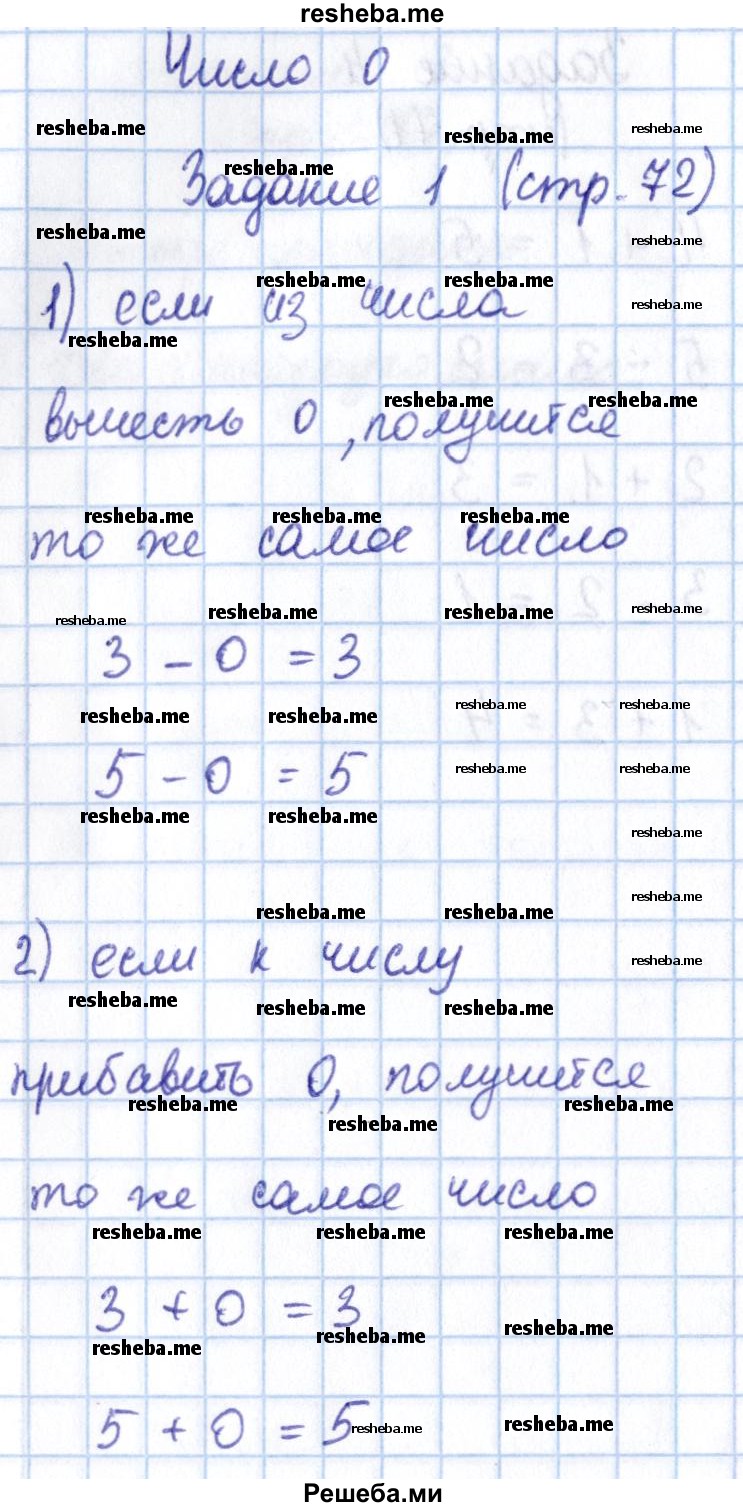 resheba.me
Число 0
resheba.me resheba.me resheba.me
resheba.me
Задание 1 (стр. 72)
resheba.me resheba.me
resheba.me resheba.me resheba.me
1) если из числа
resheba.me
resheba.me resheba.me
вычесть 0, получится
resheba.me resheba.me resheba.me
то же самое число
resheba.me resheba.me resheba.me resheba.me
3 - 0 = 3
resheba.me resheba.me resheba.me resheba.me
5 - 0 = 5 resheba.me resheba.me
resheba.me resheba.me
resheba.me
resheba.me
resheba.me resheba.me
2) если к числу resheba.me
resheba.me resheba.me resheba.me
прибавить 0, получится
resheba.me resheba.me resheba.me
то же самое число
resheba.me resheba.me resheba.me
3 + 0 = 3
resheba.me resheba.me resheba.me
5 + 0 = 5 resheba.me resheba.me
Решеба.ми